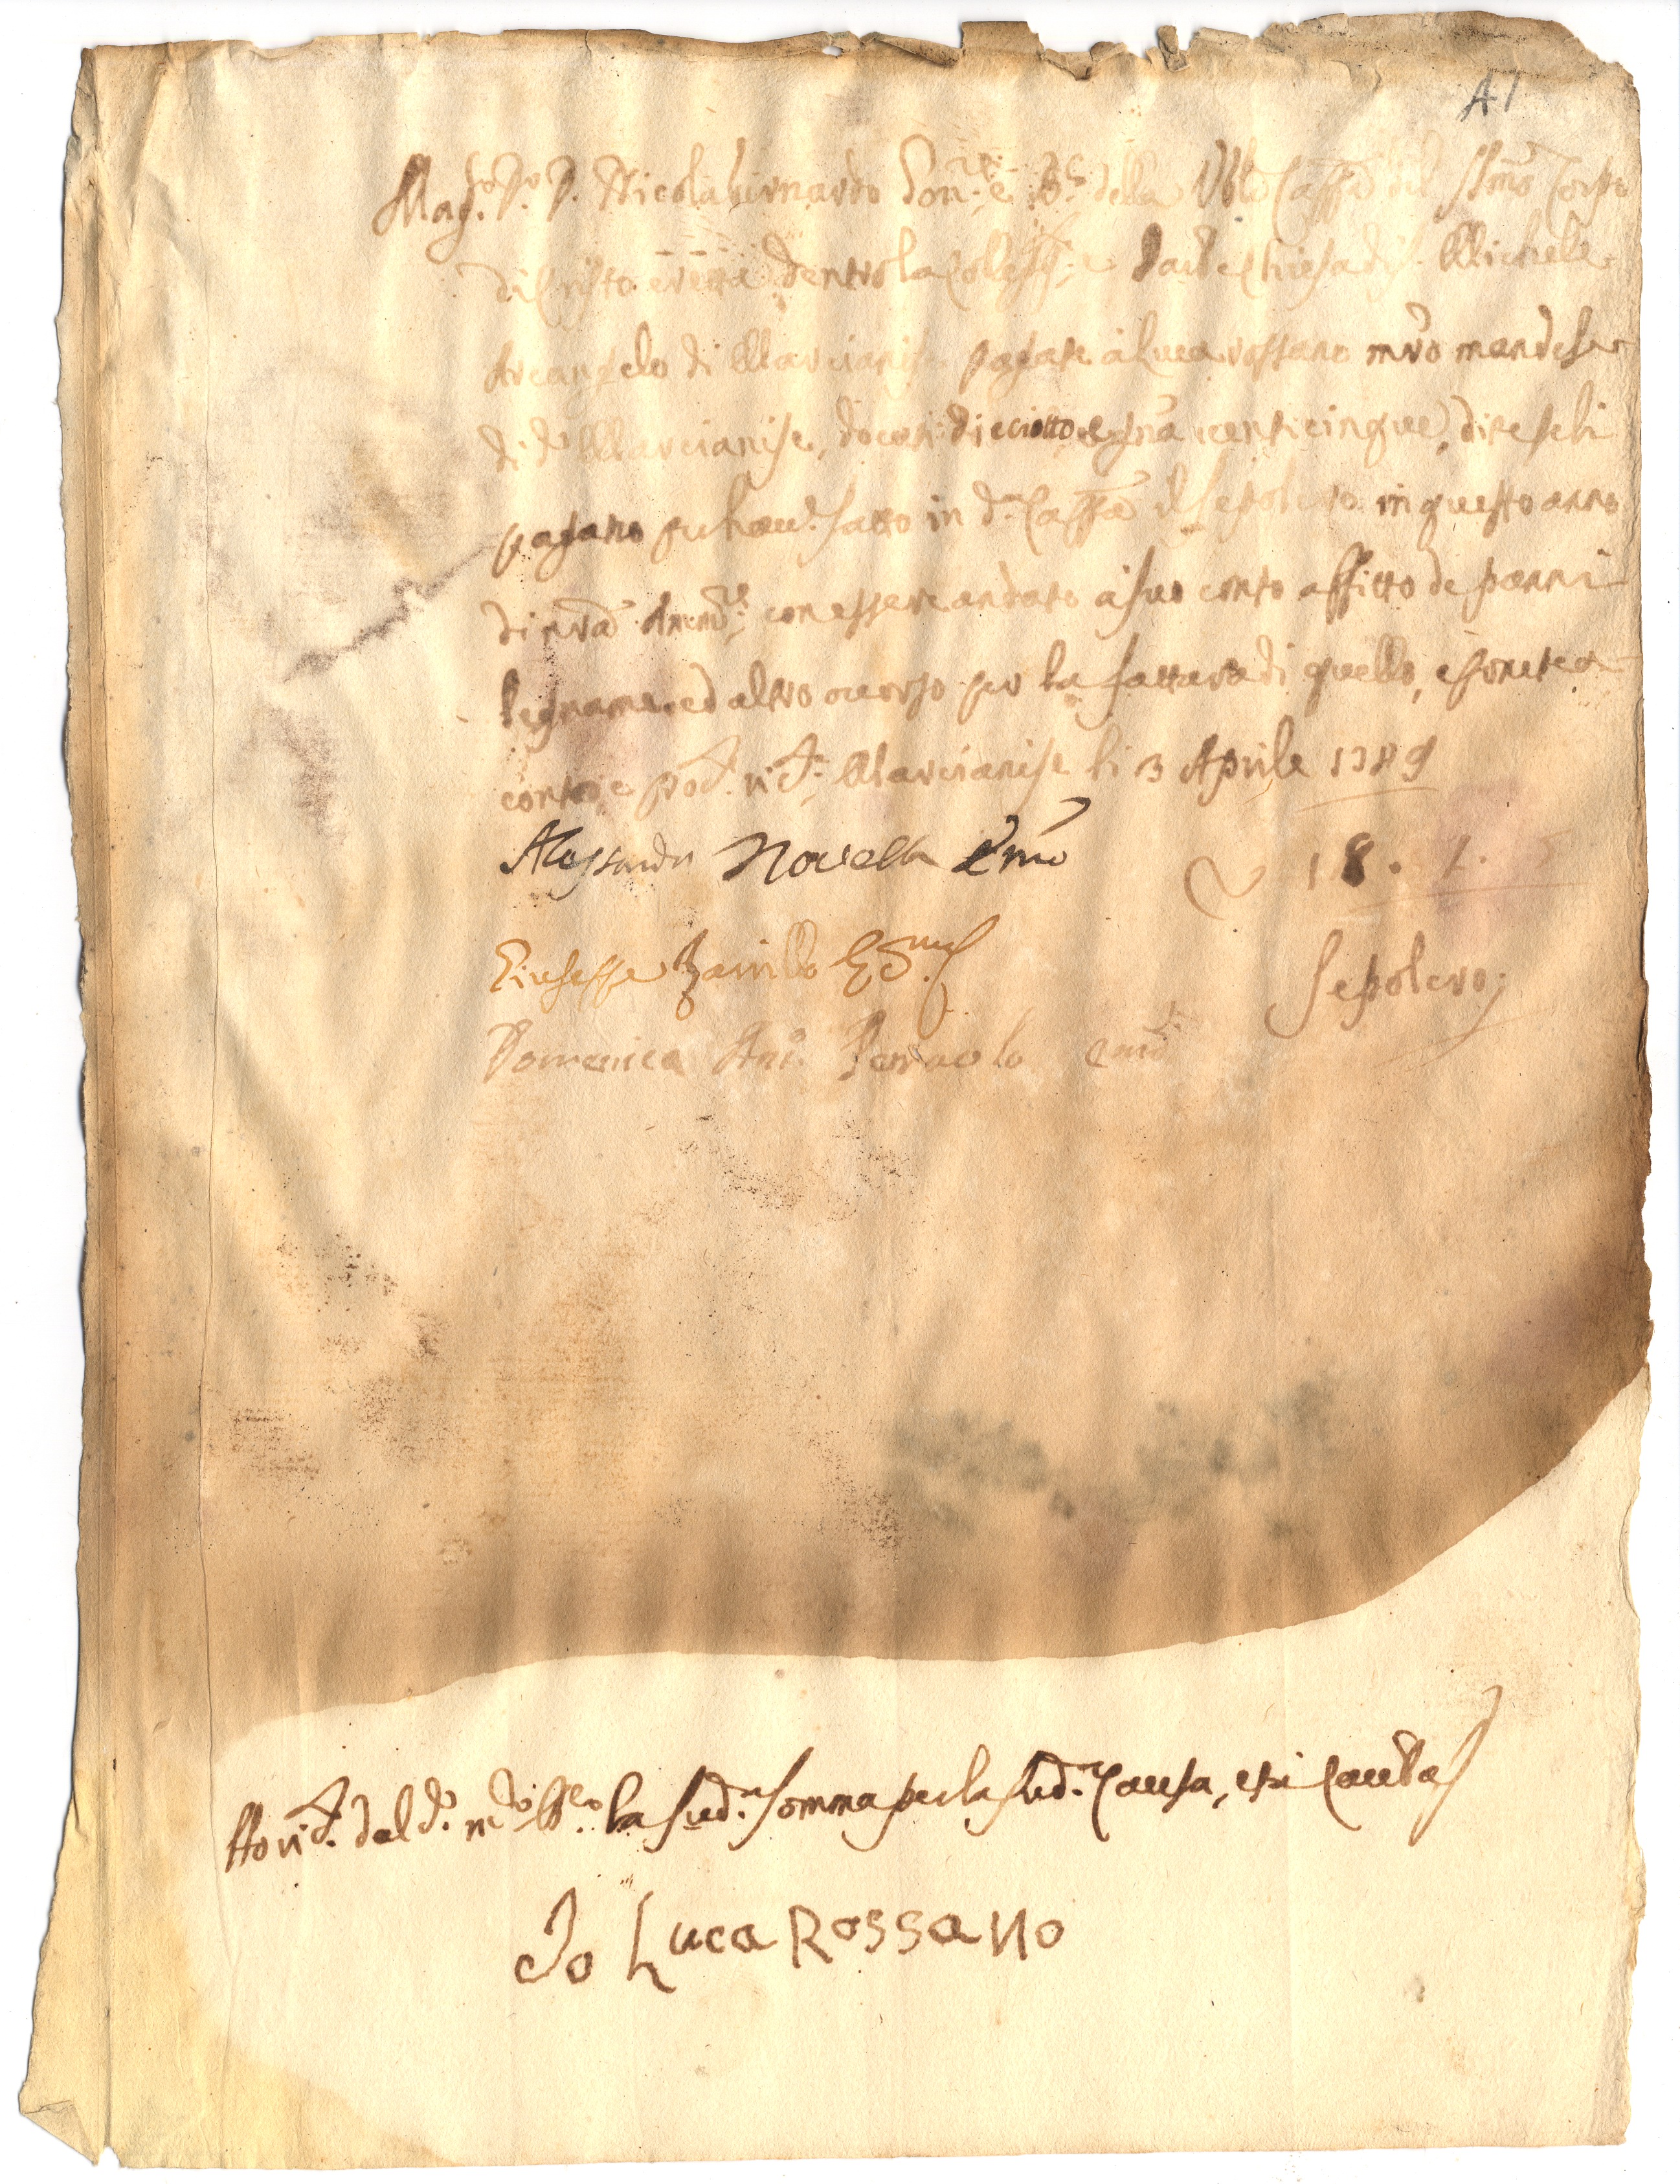 A1
Mag.co P.re D. Nicola bernardo della Ven.le Cappa del SS.mo Corpo
di Cristo eretta dentro la Colleg.e Chiesa di S. Michele
Arcangelo di Marcianise pagate à Luca rossano mro mandese
di d.o Marcianise, docati dieciotto e gna venticinque, dite seli
pagano per haver fatto in d.a Cappa il sepolcro in questo anno
di nra Ammne con essere andato à suo conto affitto de panni
legname, ed altro occorso per la fattura di quello, e ponete à
conto, e pod. r.ta Marcianise li 3 Aprile 1789
Alessandro Novella Ecmo
18. 1.
Giuseppe Zarrillo
Sepolcro;
Domenico Ant. ecmo
Ho r.to dal d.o la sud.a somma per la sud.a Causa, e pi Cautela
Io Luca Rossano